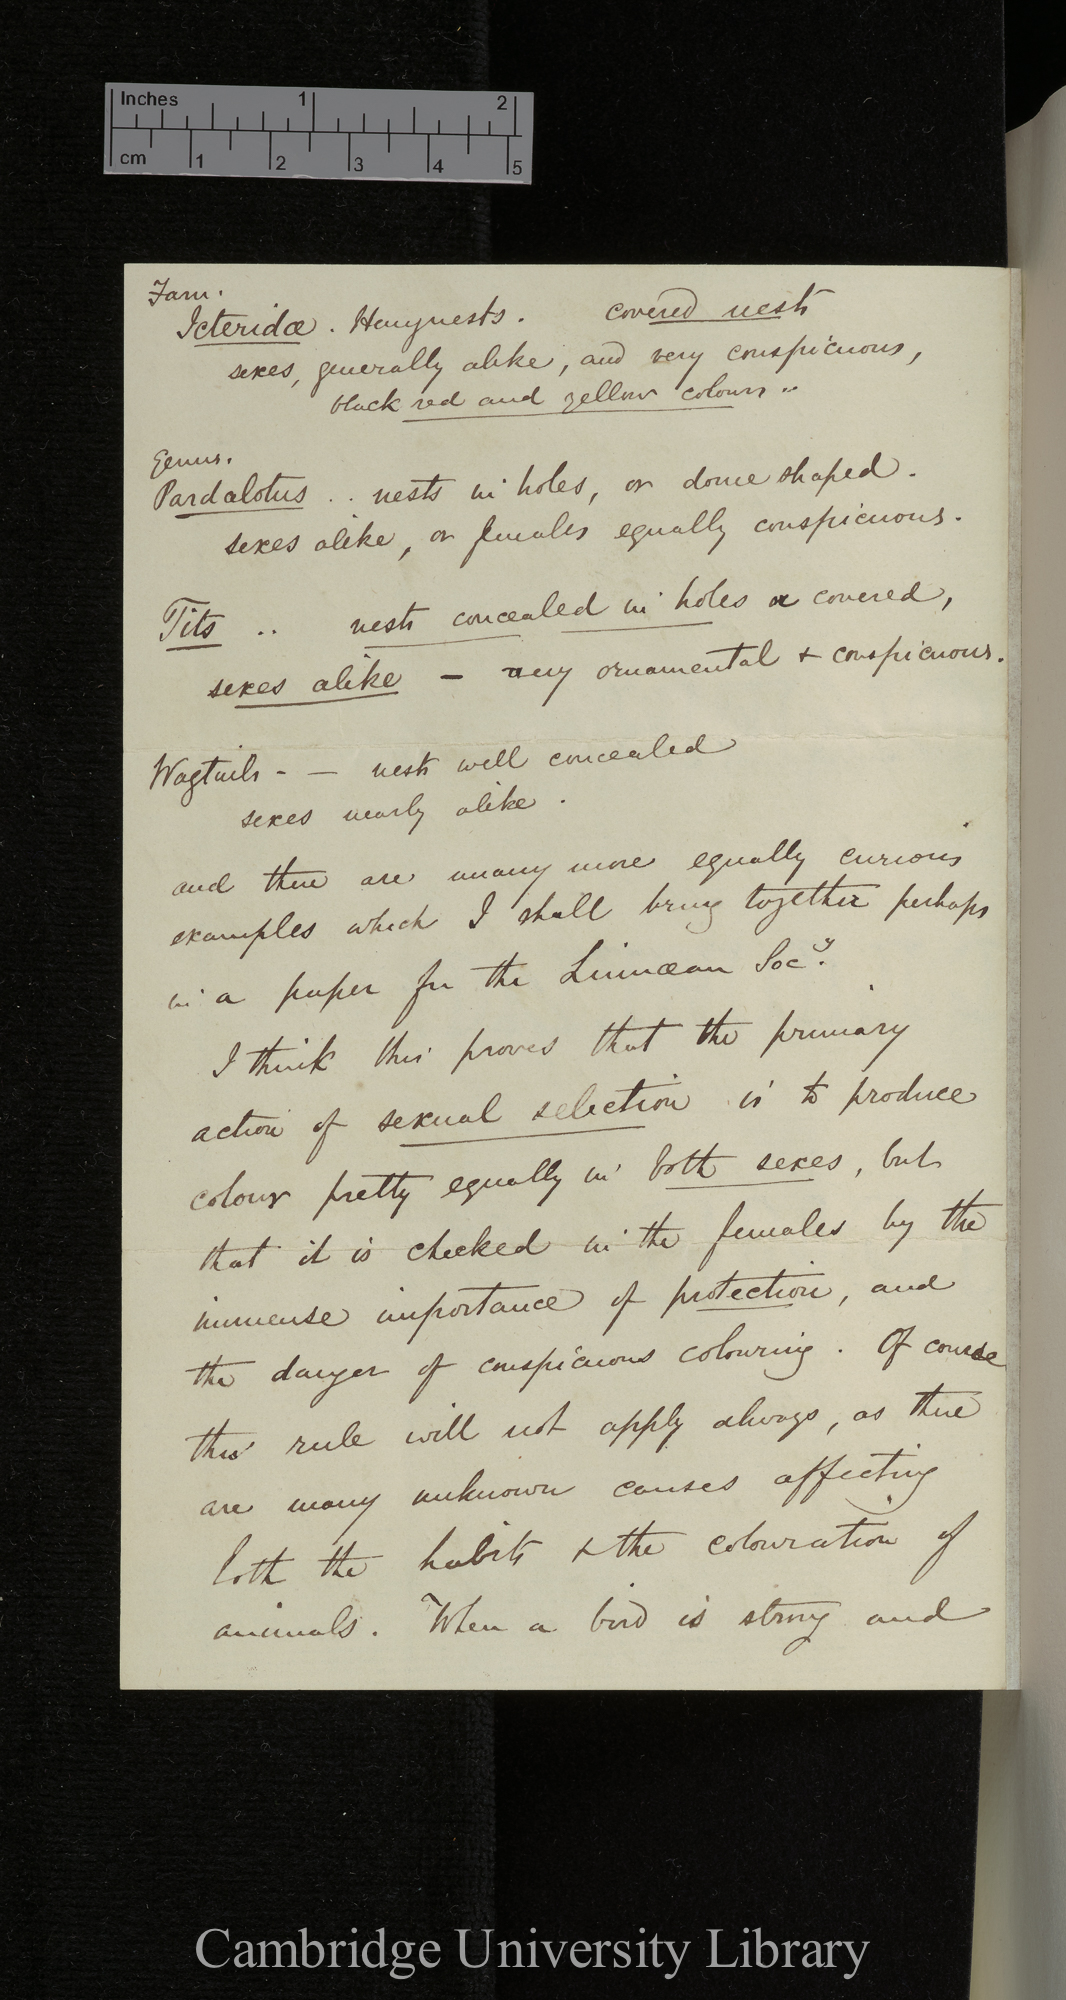 Inches 1 2
cm 1 2 3 4 5
Fam.
Icteridæ. Hangnests. covered nests
sexes, generally alike, and very conspicuous,
black red and yellow colours..
Genus.
Pardalotus .. nests in holes, or dome shaped.
sexes alike, or females equally conspicuous.
Tits .. nests concealed in holes or covered,
sexes alike - very ornamental & conspicuous.
Wagtails - - nests well concealed
sexes nearly alike.
and there are many more equally curious
examples which I shall bring together perhaps
in a paper for the Linnæan Socy.
I think this proves that the primary
action of sexual selection is to produce
colour pretty equally in both sexes, but
that it is checked in the females by the
immense importance of protection, and
the danger of conspicuous colouring. Of course
this rule will not apply always, as there
are many unknown causes affecting
both the habits & the colouration of
animals. When a bird is strong and
Cambridge University Library